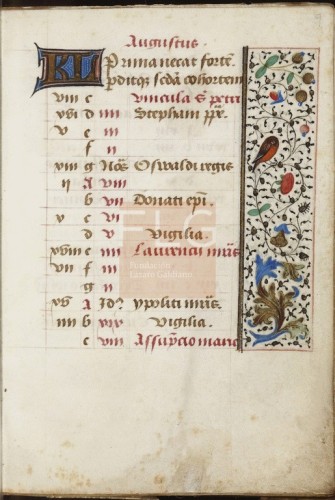 Augustus.
KL Prima necat forte.
pditqz seda cohortem
viii c vincula s petri
xvi d iiii Stephani ppe.
v e iii
f ii
xiii g Nos Oswaldi regis
ii A viii
b vii Donati epi.
v c vi
d v Vigilia.
xviii e iiii Laurencii mris
vii f iii
g ii
xv A Idz ypoliti mris.
iiii b xix Vigilia.
c viii Assupcio marie
FLG
Fundación
Lázaro Galdiano